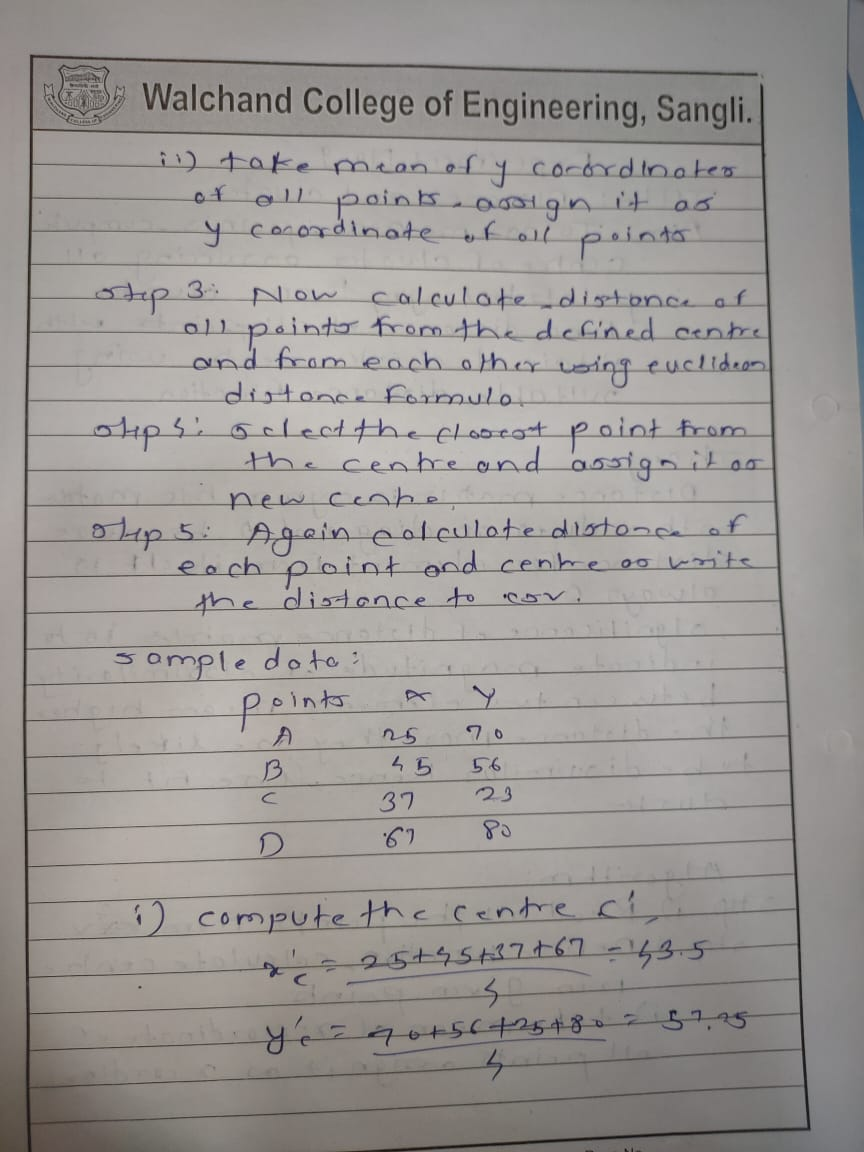 Walchand College of Engineering, Sangli.
ii) take mean of y coordinates
of all points, assign it as
y cocordinate of all points
step 3: Now calculate distance of
all points from the defined centre
and from each other using euclidean
distance formula.
step 4: select the closest point from
the centre and assign it as
new centre.
step 5: Again calculate distance of
each point and centre as write
the distance to csv.
sample data:
points x Y
A 25 70
B 45 56
C 37 23
D 67 80
i) compute the centre c',
x'c = 25+45+37+67 = 43.5
4
y'c = 70+56+25+80 = 57.25
4